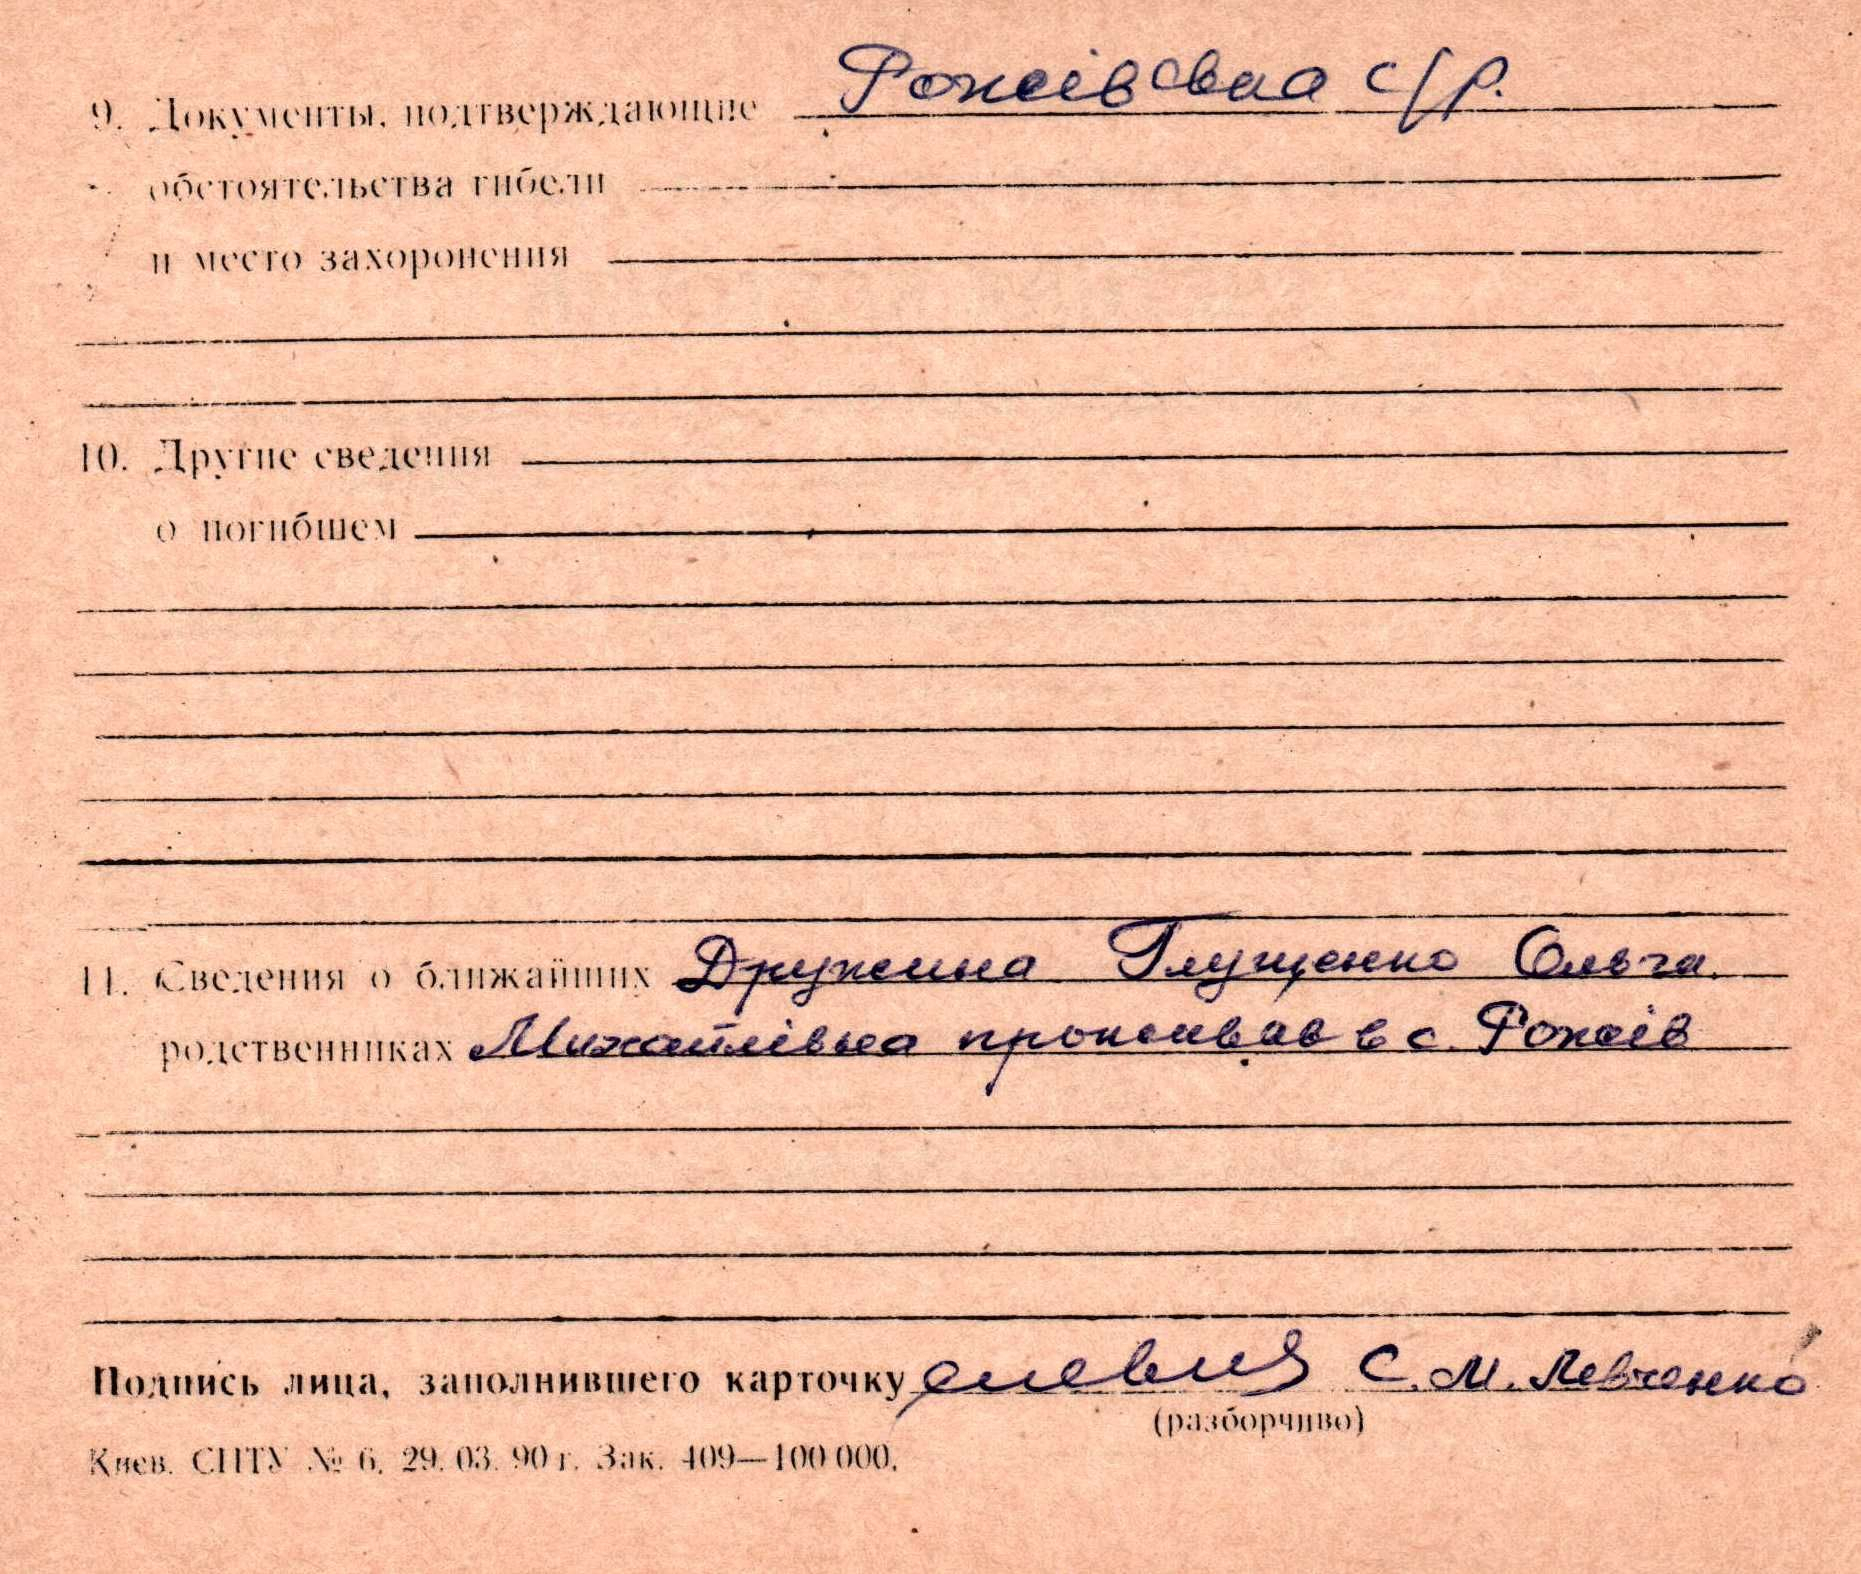 9. Документы, подтверждающие Рожівська с/р.
обстоятельства гибели
и место захоронения
10. Другие сведения
о погибшем
11. Сведения о ближайших Дружина Глущенко Ольга
родственниках Михайлівна проживав в с. Рожів
Подпись лица, заполнившего карточку С. М. Левченко
(разборчиво)
Киев. СПТУ № 6. 29. 03. 90 г. Зак. 409—100 000.